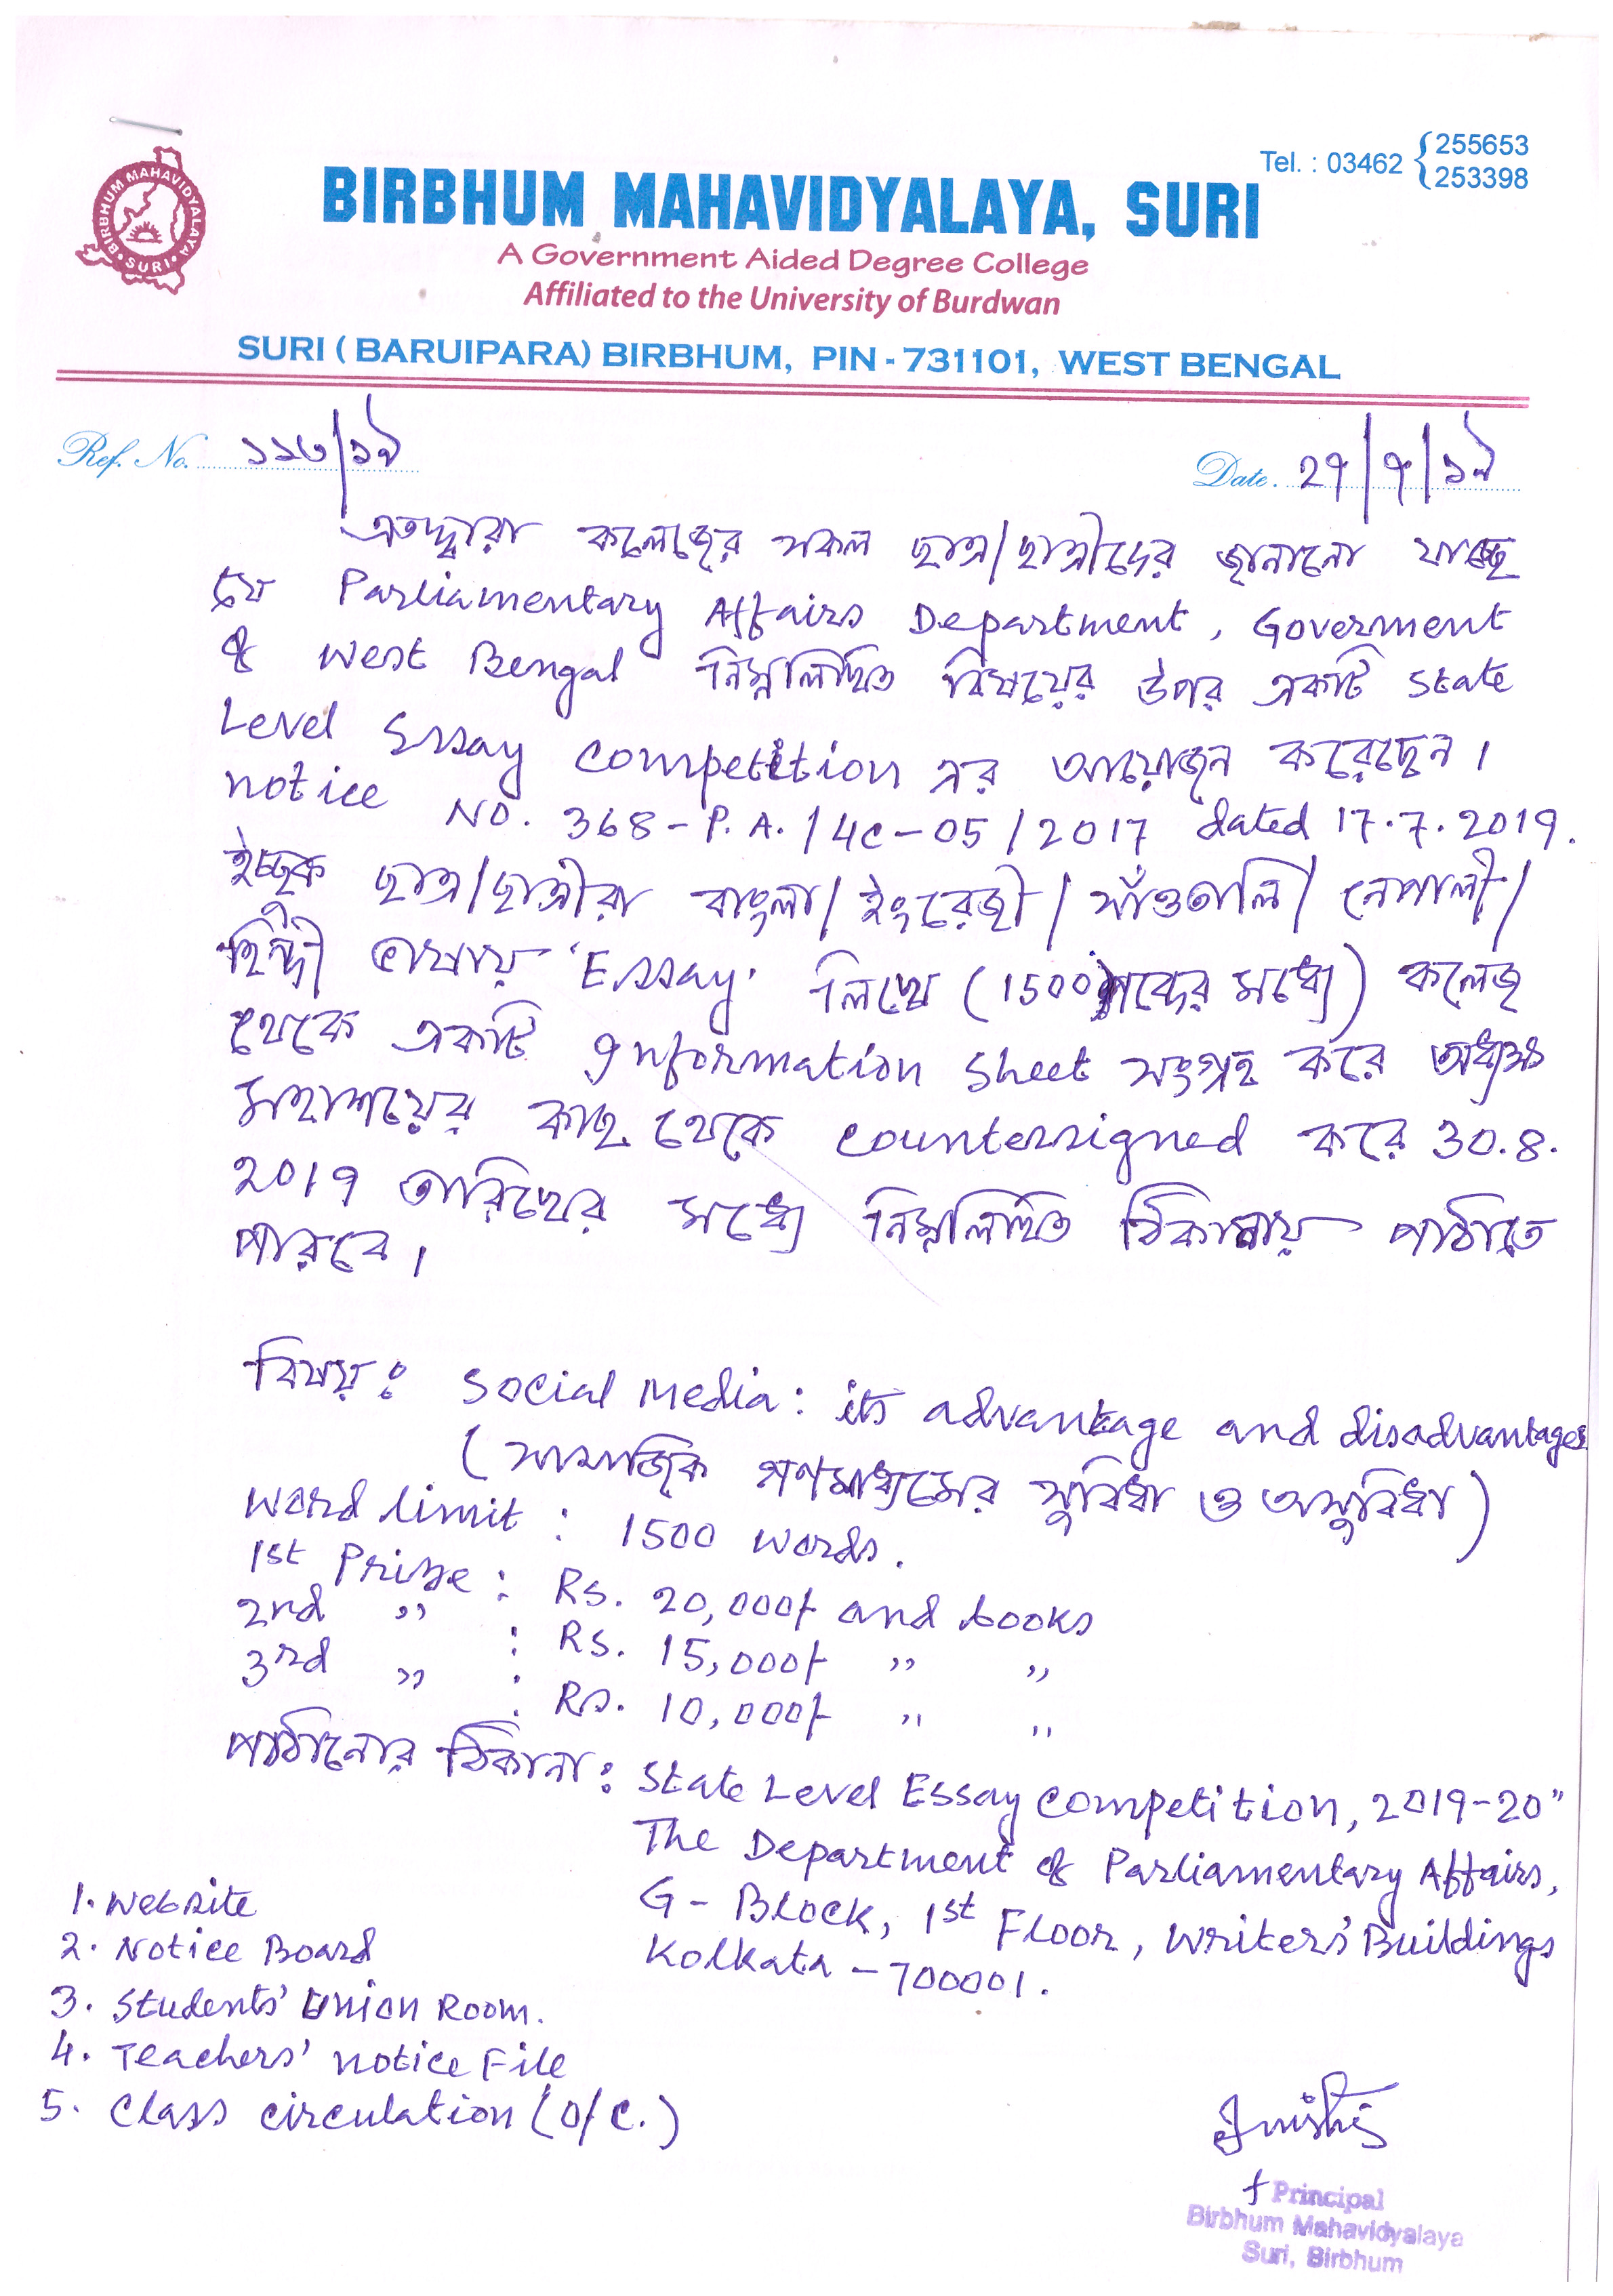 Tel. : 03462 { 255653
253398
BIRBHUM MAHAVIDYALAYA
SURI
BIRBHUM MAHAVIDYALAYA, SURI
A Government Aided Degree College
Affiliated to the University of Burdwan
SURI ( BARUIPARA) BIRBHUM, PIN - 731101, WEST BENGAL
Ref. No. ১১৩/১৯
Date. 27/৭/১৯
এতদ্দ্বারা কলেজের সকল ছাত্র/ছাত্রীদের জানানো যাচ্ছে
যে Parliamentary Affairs Department, Goverment
of West Bengal নিম্নলিখিত বিষয়ের উপর একটি State
Level Essay Competition এর আয়োজন করেছেন।
notice NO. 368-P.A./4C-05/2017 dated 17.7.2019.
ইচ্ছুক ছাত্র/ছাত্রীরা বাংলা/ইংরেজী/সাঁওতালি/নেপালী/
হিন্দী ভাষায় 'Essay' লিখে (1500 শব্দের মধ্যে) কলেজ
থেকে একটি Information Sheet সংগ্রহ করে অধ্যক্ষ
মহাশয়ের কাছ থেকে countersigned করে 30.8.
2019 তারিখের মধ্যে নিম্নলিখিত ঠিকানায় পাঠাতে
পারবে।
বিষয়ঃ Social Media: its advantage and disadvantages
(সামাজিক গণমাধ্যমের সুবিধা ও অসুবিধা)
Word limit : 1500 words.
1st Prize : Rs. 20,000/- and books
2nd ,, : Rs. 15,000/- ,, ,,
3rd ,, : Rs. 10,000/- ,, ,,
পাঠানোর ঠিকানাঃ State Level Essay Competition, 2019-20"
The Department of Parliamentary Affairs,
G- Block, 1st Floor, Writers' Buildings
Kolkata - 700001.
1. Website
2. Notice Board
3. Students' Union Room.
4. Teachers' notice File
5. Class circulation (O/C.)
Principal
Birbhum Mahavidyalaya
Suri, Birbhum